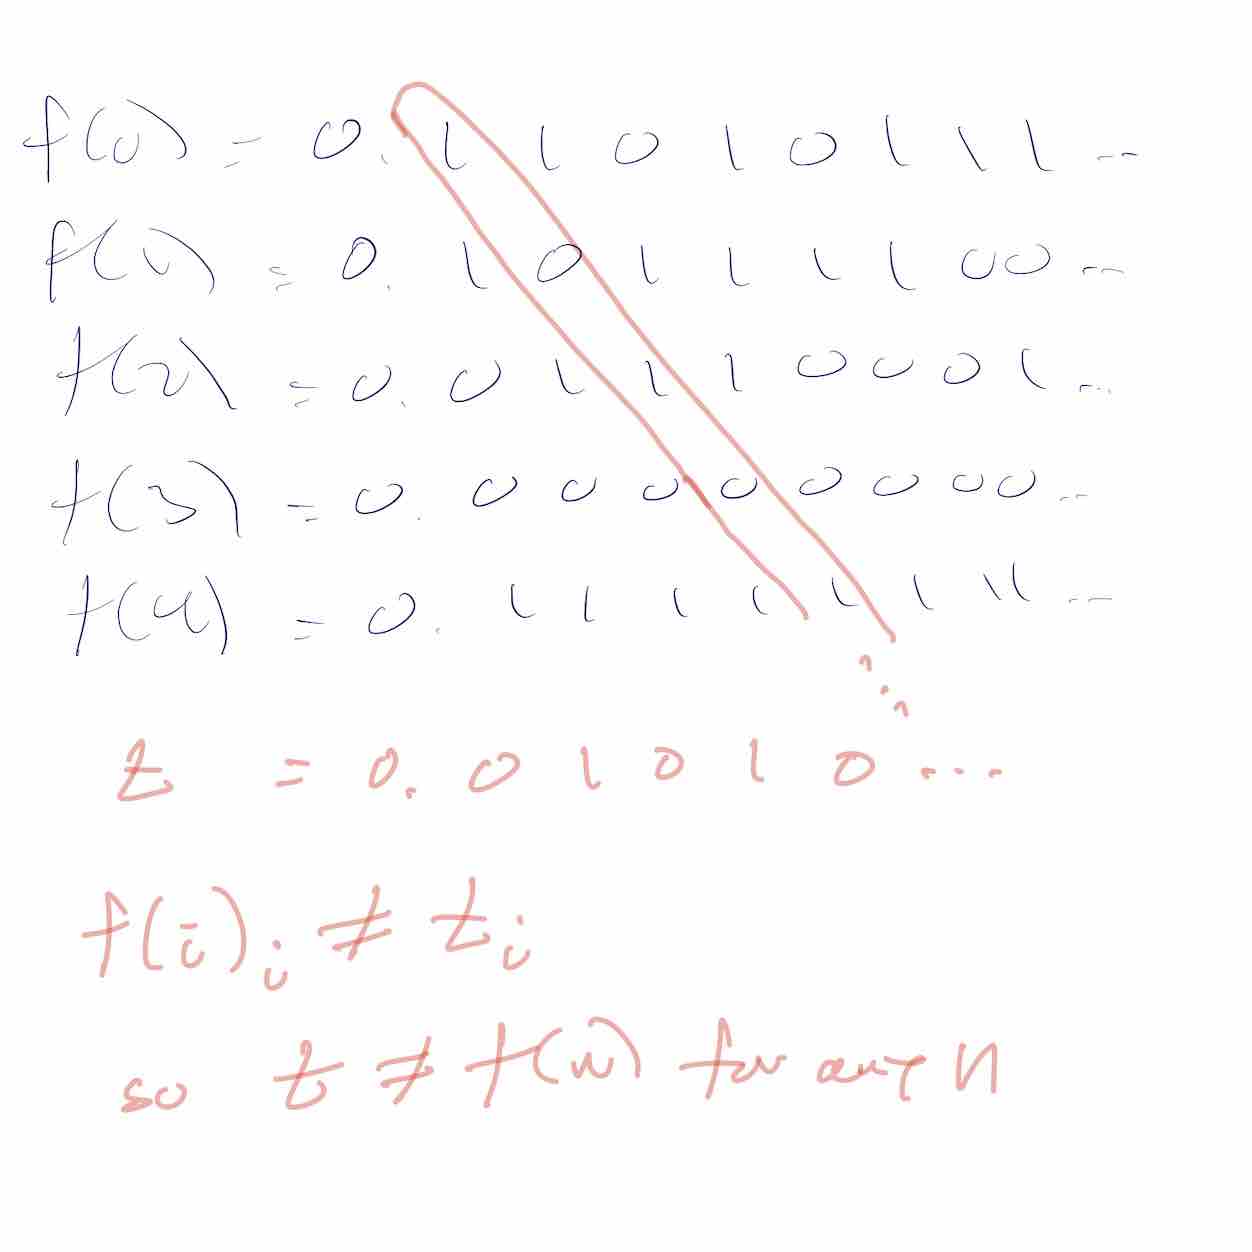 f(0) = 0.11010111...
f(1) = 0.10111100...
f(2) = 0.01110001...
f(3) = 0.00000000...
f(4) = 0.11111111...
z = 0.01010...
f(i)i ≠ zi
so z ≠ f(n) for any n